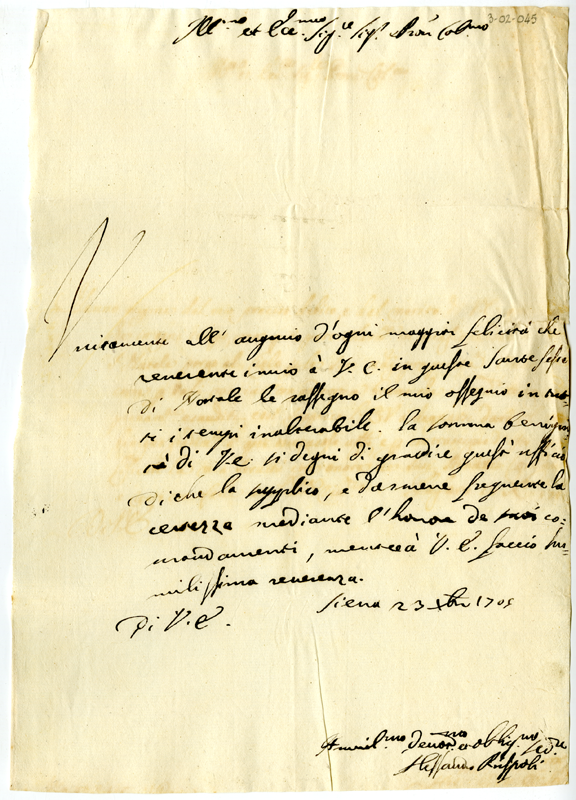 3-02-045
Ill.mo et Ecc.mo Sig.re Sig.r Pron Col.mo
Vnitamente all' augurio d'ogni maggior felicità che
reverente invio à V. E. in queste Sante feste
di Natale le rassegno il mio ossequio in tut-
ti i tempi inalterabile. La somma benigni
tà di V.E. si degni di gradire quest' uffício
di che la supplico, e darmene frequente la
certezza mediante l'honor de suoi co=
mandamenti, mentre à V. E. faccio hu=
milissima reverenza.
Di V. E.
Siena 23 Xbre 1705
Humil.mo Devot.mo obblig.mo Ser.re
Alessandro Ruspoli